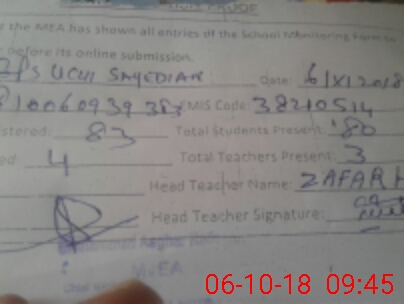 the MEA has shown all entries of the School Monitoring Form
before its online submission.
UCHI SAYEDIAN Date: 6/X/2018
EMIS Code: 38210514
stered: 83 Total Students Present: 80
ed 4 Total Teachers Present: 3
Head Teacher Name: ZAFAR
Head Teacher Signature:
MEA
06-10-18 09:45